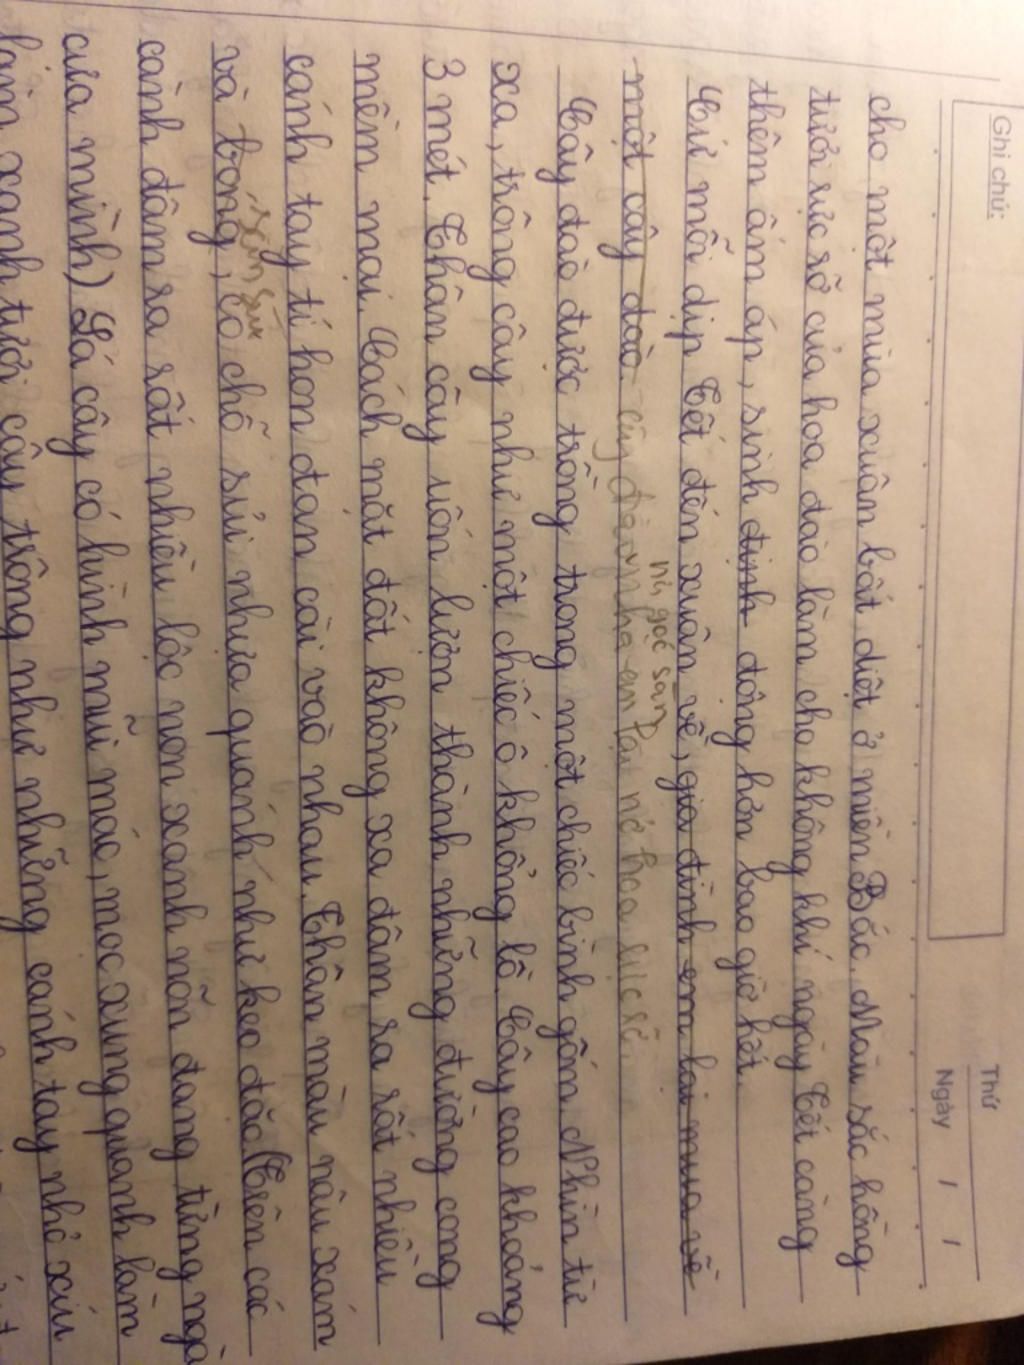 Thứ
Ngày / /
Ghi chú:
cho một mùa xuân bất diệt ở miền Bắc. Màu sắc hồng
tươi rực rỡ của hoa đào làm cho không khí ngày Tết càng
thêm ấm áp, sinh định động hơn bao giờ hết.
Cứ mỗi dịp Tết đến xuân về, gia đình em lại mua về
ni, góc sân
một cây đào. cây đào nhà em lại nở hoa rực rỡ
Cây đào được trồng trong một chiếc bình gốm. Nhìn từ
xa, trông cây như một chiếc ô khổng lồ. Cây cao khoảng
3 mét. Thân cây uốn lượn thành những đường cong
mềm mại. Cách mặt đất không xa đâm ra rất nhiều
cánh tay tí hon đan cài vào nhau. Thân màu nâu xám
sần sùi
và bóng, có chỗ sủi nhựa quánh như keo đặc (Trên các
cành đâm ra rất nhiều lộc non xanh nõn đang từng ngà
của mình) Lá cây có hình mũi mác, mọc xung quanh làm
làm xanh tươi cây trông như những cánh tay nhỏ xíu